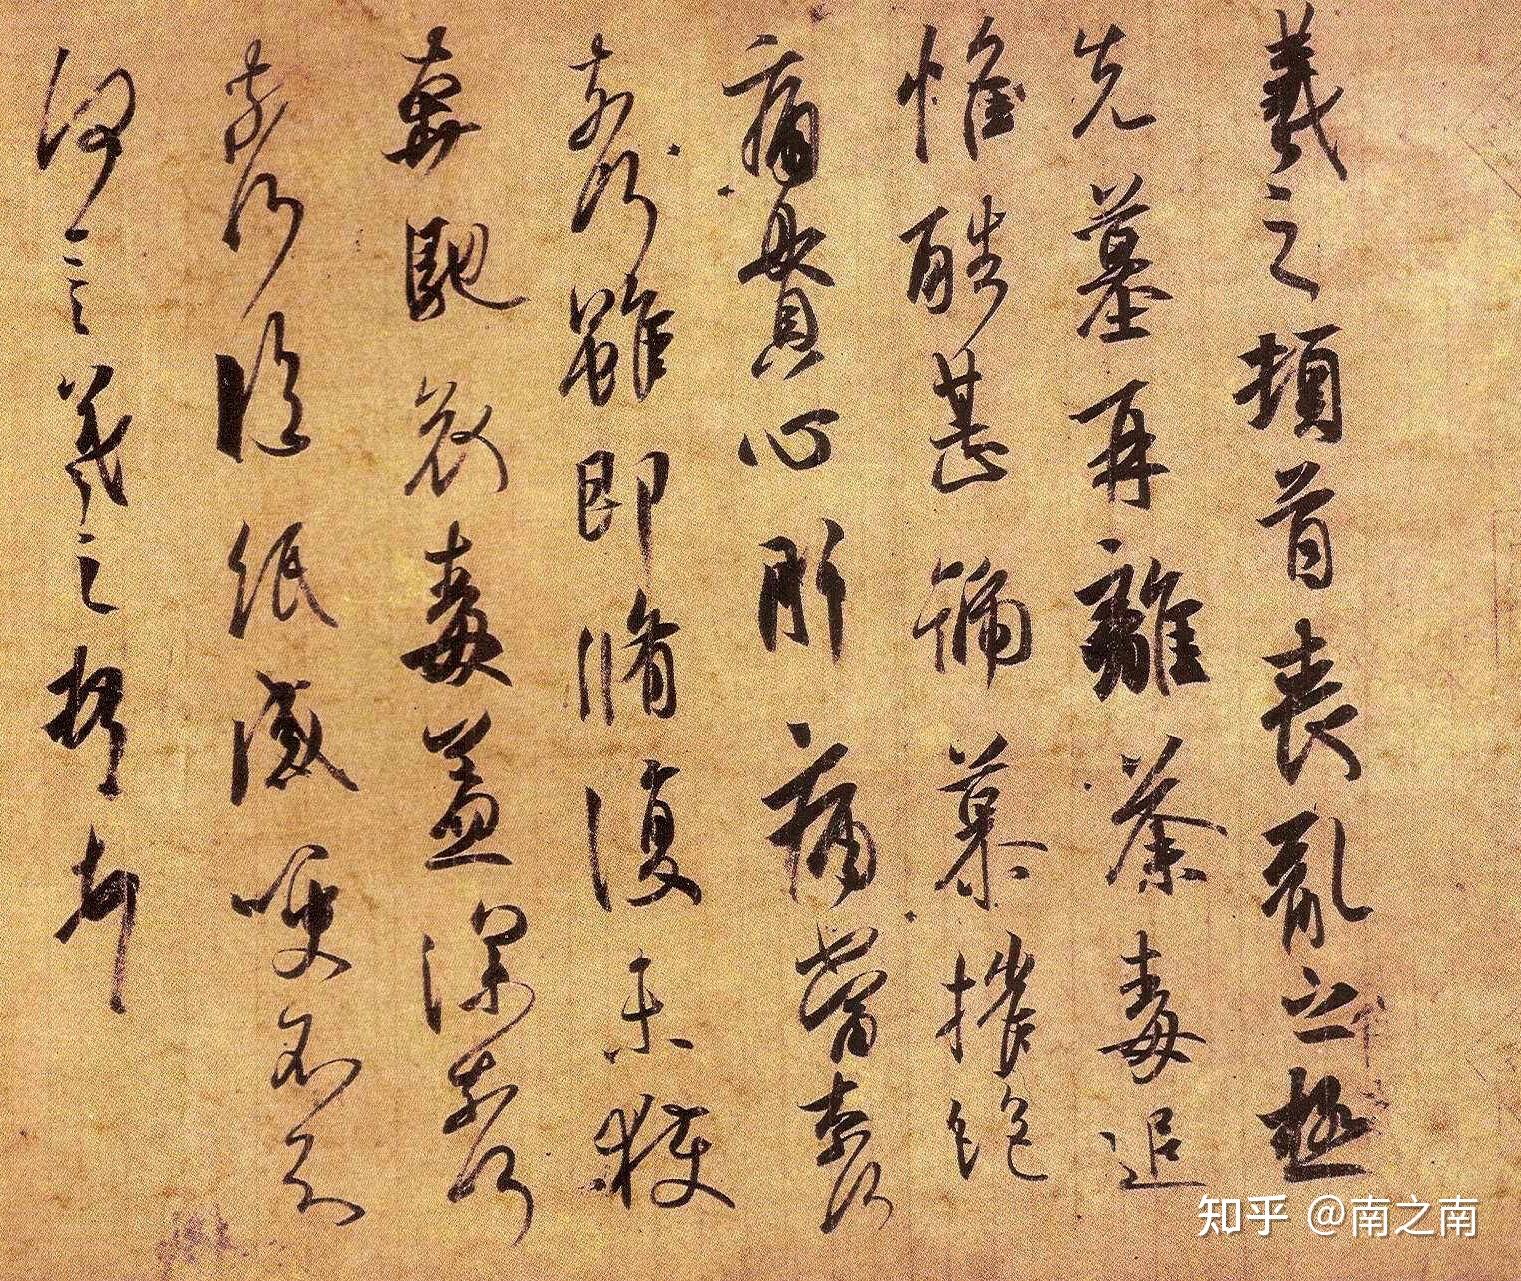 羲之頓首喪亂之極
先墓再離荼毒追
惟酷甚號慕摧絶
痛貫心肝痛當柰何
柰何雖即脩復未獲
奔馳哀毒益深柰何
柰何臨紙感哽不知
何言羲之頓首頓首
知乎 @南之南